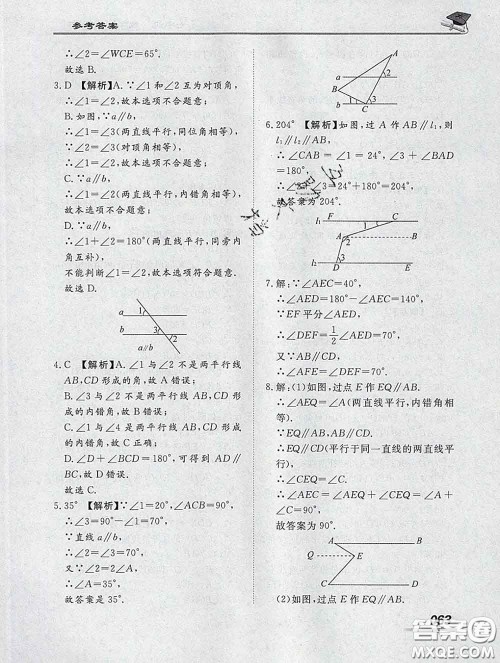 参考答案
∴∠2=∠WCE=65°.
故选 B.
3. D 【解析】A. ∵∠1 和∠2 互为对顶角,
∴∠1=∠2,故本选项不合题意;
B. 如图,∵a∥b,
∴∠1=∠3(两直线平行,同位角相等),
∵∠2=∠3(对顶角相等),
∴∠1=∠2,故本选项不合题意;
C. ∵a∥b,
∴∠1=∠2(两直线平行,内错角相等),
故本选项不合题意;
D. ∵a∥b,
∴∠1+∠2=180°(两直线平行,同旁内
角互补),
不能判断∠1=∠2,故本选项符合题意.
故选 D.
1
a
3
b
2
a∥b
4. C 【解析】A. ∠1 与∠2 不是两平行线
AB,CD 形成的角,故 A 错误;
B. ∠3 与∠2 不是两平行线 AB,CD 形
成的内错角,故 B 错误;
C. ∠1 与∠4 是两平行线 AB,CD 形成
的内错角,故 C 正确;
D. ∠D+∠BCD=180°,可得到 AD∥
BC,故 D 错误.
故选 C.
5. 35° 【解析】∵∠1=20°,∠ACB=90°,
∴∠3=90°-∠1=70°,
∵直线 a∥b,
∴∠2=∠3=70°,
又∵∠2=2∠A,
∴∠A=35°.
故答案是 35°.
A
2
B
1
3
C
6. 204° 【解析】如图,过 A 作 AB∥l₁,则
l₁∥l₂∥AB,
∴∠CAB=∠1=24°,∠3+∠BAD
=180°,
∴∠3=24°+180°=204°.
故答案为 204°.
l₁ F C
1
A B
2
l₂
3
D E
7. 解:∵∠AEC=40°,
∴∠AED=180°-∠AEC=140°,
∵EF 平分∠AED,
∴∠DEF=1/2∠AED=70°,
又∵AB∥CD,
∴∠AFE=∠DEF=70°.
8. 解:(1)如图,过点 E 作 EQ∥AB,
∴∠AEQ=∠A(两直线平行,内错角相
等).
∵EQ∥AB,AB∥CD.
∴EQ∥CD.(平行于同一直线的两直线平
行)
∴∠CEQ=∠C.
∴∠AEC=∠AEQ+∠CEQ=∠A
+∠C=90°.
故答案为 90°.
A B
Q E
C D
(2)如图,过点 E 作 EQ∥AB,
063
答案圈
MXQE.COM